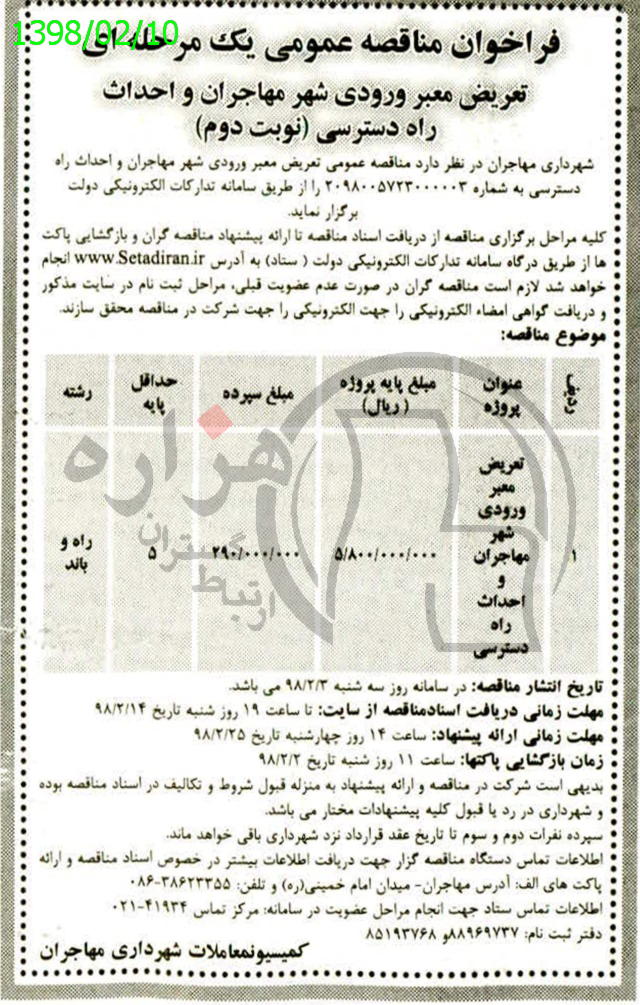 1398/02/10
فراخوان مناقصه عمومی یک مرحله ای
تعریض معبر ورودی شهر مهاجران و احداث
راه دسترسی (نوبت دوم)
شهرداری مهاجران در نظر دارد مناقصه عمومی تعریض معبر ورودی شهر مهاجران و احداث راه
دسترسی به شماره ۲۰۹۸۰۰۵۷۲۳۰۰۰۰۰۳ را از طریق سامانه تدارکات الکترونیکی دولت
برگزار نماید.
کلیه مراحل برگزاری مناقصه از دریافت اسناد مناقصه تا ارائه پیشنهاد مناقصه گران و بازگشایی پاکت
ها از طریق درگاه سامانه تدارکات الکترونیکی دولت ( ستاد) به آدرس www.Setadiran.ir انجام
خواهد شد لازم است مناقصه گران در صورت عدم عضویت قبلی، مراحل ثبت نام در سایت مذکور
و دریافت گواهی امضاء الکترونیکی را جهت الکترونیکی را جهت شرکت در مناقصه محقق سازند.
موضوع مناقصه:
ردیف
عنوان پروژه
مبلغ پایه پروژه (ریال)
مبلغ سپرده
حداقل پایه
رشته
۱
تعریض
معبر
ورودی
شهر
مهاجران
و
احداث
راه
دسترسی
۵/۸۰۰/۰۰۰/۰۰۰
۲۹۰/۰۰۰/۰۰۰
۵
راه و
باند
هزاره
گستران
ارتباط
تاریخ انتشار مناقصه: در سامانه روز سه شنبه ۹۸/۲/۳ می باشد.
مهلت زمانی دریافت اسنادمناقصه از سایت: تا ساعت ۱۹ روز شنبه تاریخ ۹۸/۲/۱۴
مهلت زمانی ارائه پیشنهاد: ساعت ۱۴ روز چهارشنبه تاریخ ۹۸/۲/۲۵
زمان بازگشایی پاکتها: ساعت ۱۱ روز شنبه تاریخ ۹۸/۲/۲
بدیهی است شرکت در مناقصه و ارائه پیشنهاد به منزله قبول شروط و تکالیف در اسناد مناقصه بوده
و شهرداری در رد یا قبول کلیه پیشنهادات مختار می باشد.
سپرده نفرات دوم و سوم تا تاریخ عقد قرارداد نزد شهرداری باقی خواهد ماند.
اطلاعات تماس دستگاه مناقصه گزار جهت دریافت اطلاعات بیشتر در خصوص اسناد مناقصه و ارائه
پاکت های الف: آدرس مهاجران- میدان امام خمینی(ره) و تلفن: ۳۸۶۲۳۳۵۵-۰۸۶
اطلاعات تماس ستاد جهت انجام مراحل عضویت در سامانه: مرکز تماس ۴۱۹۳۴-۰۲۱
دفتر ثبت نام: ۸۸۹۶۹۷۳۷و ۸۵۱۹۳۷۶۸
کمیسیونمعاملات شهرداری مهاجران